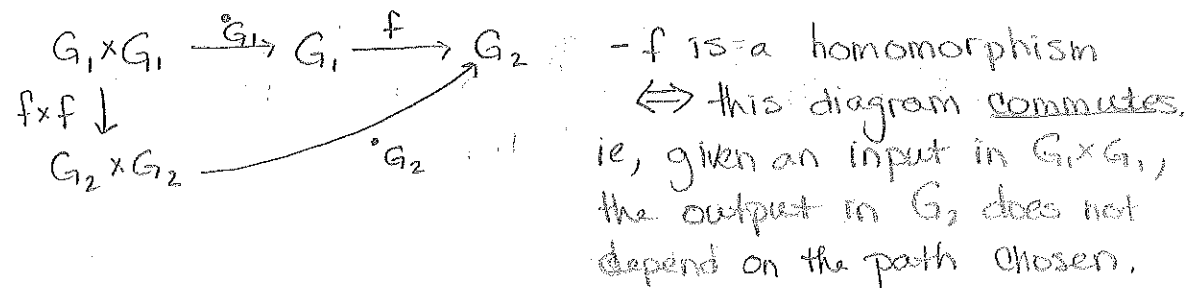 G₁×G₁ •G₁ G₁ f G₂
f×f
G₂×G₂ •G₂
- f is a homomorphism
⇔ this diagram commutes.
ie, given an input in G₁×G₁,
the output in G₂ does not
depend on the path chosen.